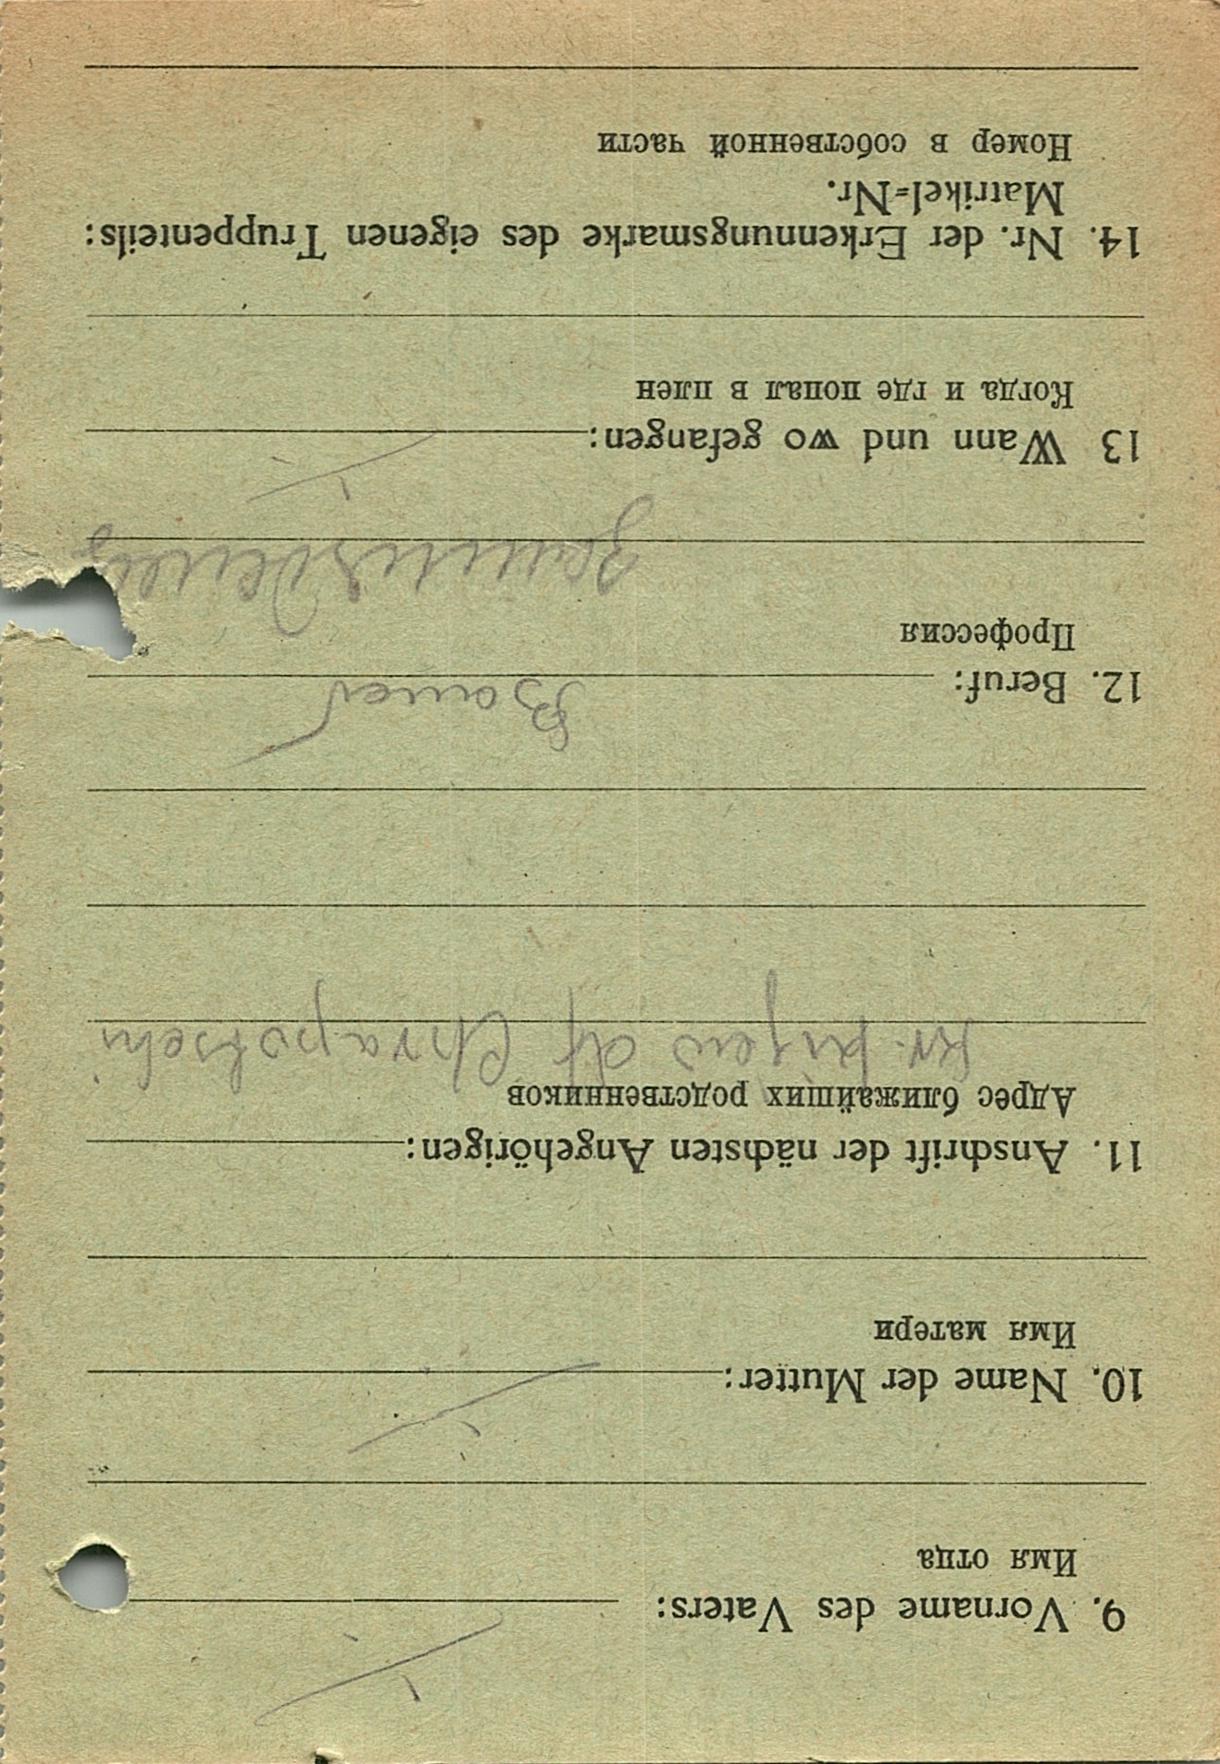 9. Vorname des Vaters:
Имя отца
10. Name der Mutter:
Имя матери
11. Anschrift der nächsten Angehörigen:
Адрес ближайших родственников
Kr. Kijew df Chrapotschi
12. Beruf: Bauer
Профессия
13 Wann und wo gefangen:
Когда и где попал в плен
14. Nr. der Erkennungsmarke des eigenen Truppenteils:
Matrikel=Nr.
Номер в собственной части